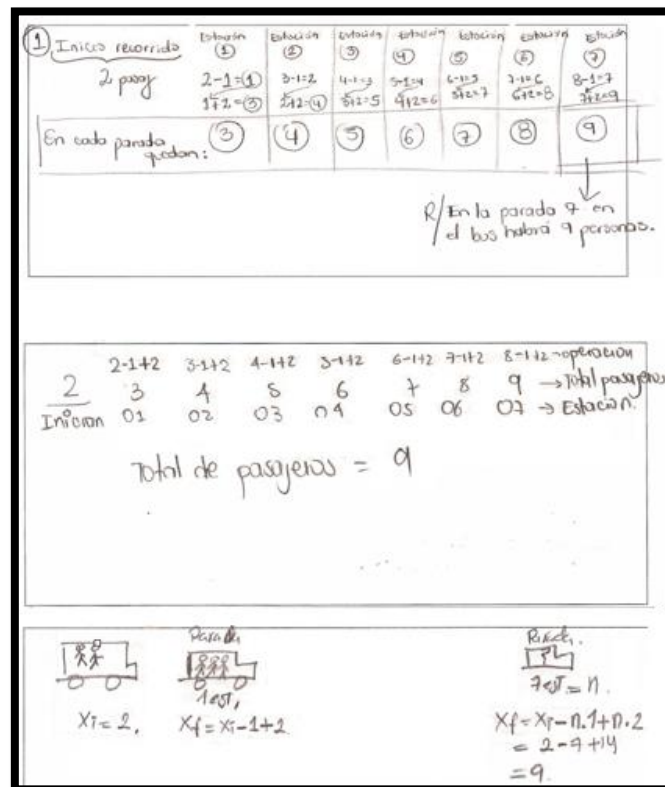 ① Inicio recorrido
2 pasaj
Estación Estación Estación Estación Estación Estación Estación
① ② ③ ④ ⑤ ⑥ ⑦
2-1=① 3-1=2 4-1=3 5-1=4 6-1=5 7-1=6 8-1=7
1+2=③ 2+2=④ 3+2=5 4+2=6 5+2=7 6+2=8 7+2=9
En cada parada quedan: ③ ④ ⑤ ⑥ ⑦ ⑧ ⑨
R/ En la parada 7 en
el bus habrá 9 personas.
2-1+2 3-1+2 4-1+2 5-1+2 6-1+2 7-1+2 8-1+2 → operación
2 3 4 5 6 7 8 9 → Total pasajeros
Inician 01 02 03 04 05 06 07 → Estación.
Total de pasajeros = 9
Parada Parada.
1 est, 7 est = n.
Xi = 2. Xf = Xi-1+2 Xf = Xi-n.1+n.2
= 2-7+14
= 9.